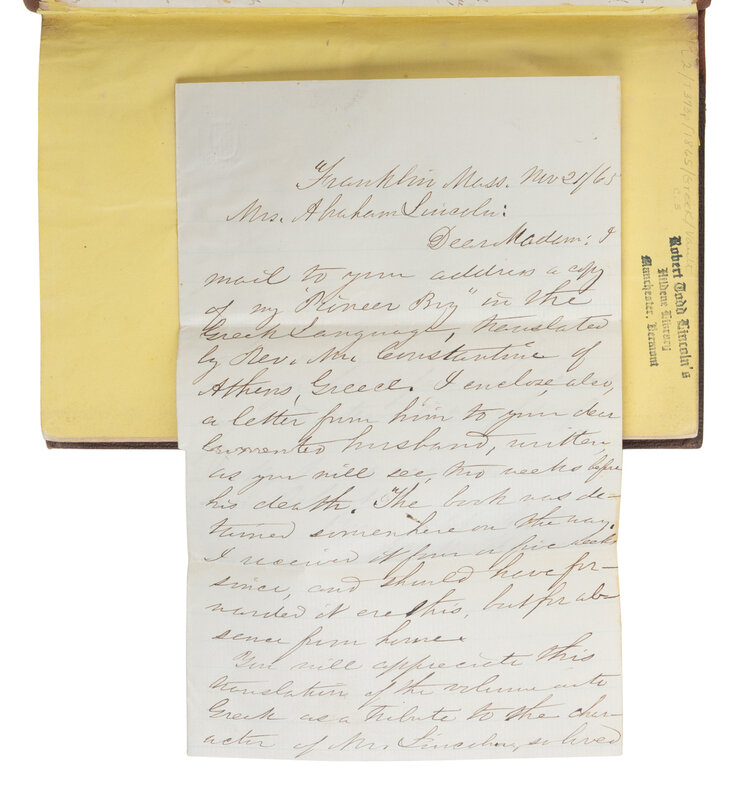 Franklin Mass. Nov 21/65
Mrs. Abraham Lincoln:
Dear Madam: I
mail to your address a copy
of my "Pioneer Boy" in the
Greek Language, translated
by Rev. Mr. Constantine of
Athens, Greece. I enclose, also,
a letter from him to your dear
lamented husband, written,
as you will see, two weeks before
his death. The book was de-
tained somewhere on the way.
I received it four or five weeks
since, and should have for-
warded it ere this, but for ab-
sence from home.
You will appreciate this
translation of the volume into
Greek as a tribute to the char-
acter of Mr. Lincoln, so loved
Robert Todd Lincoln's
Hildene Library
Manchester, Vermont